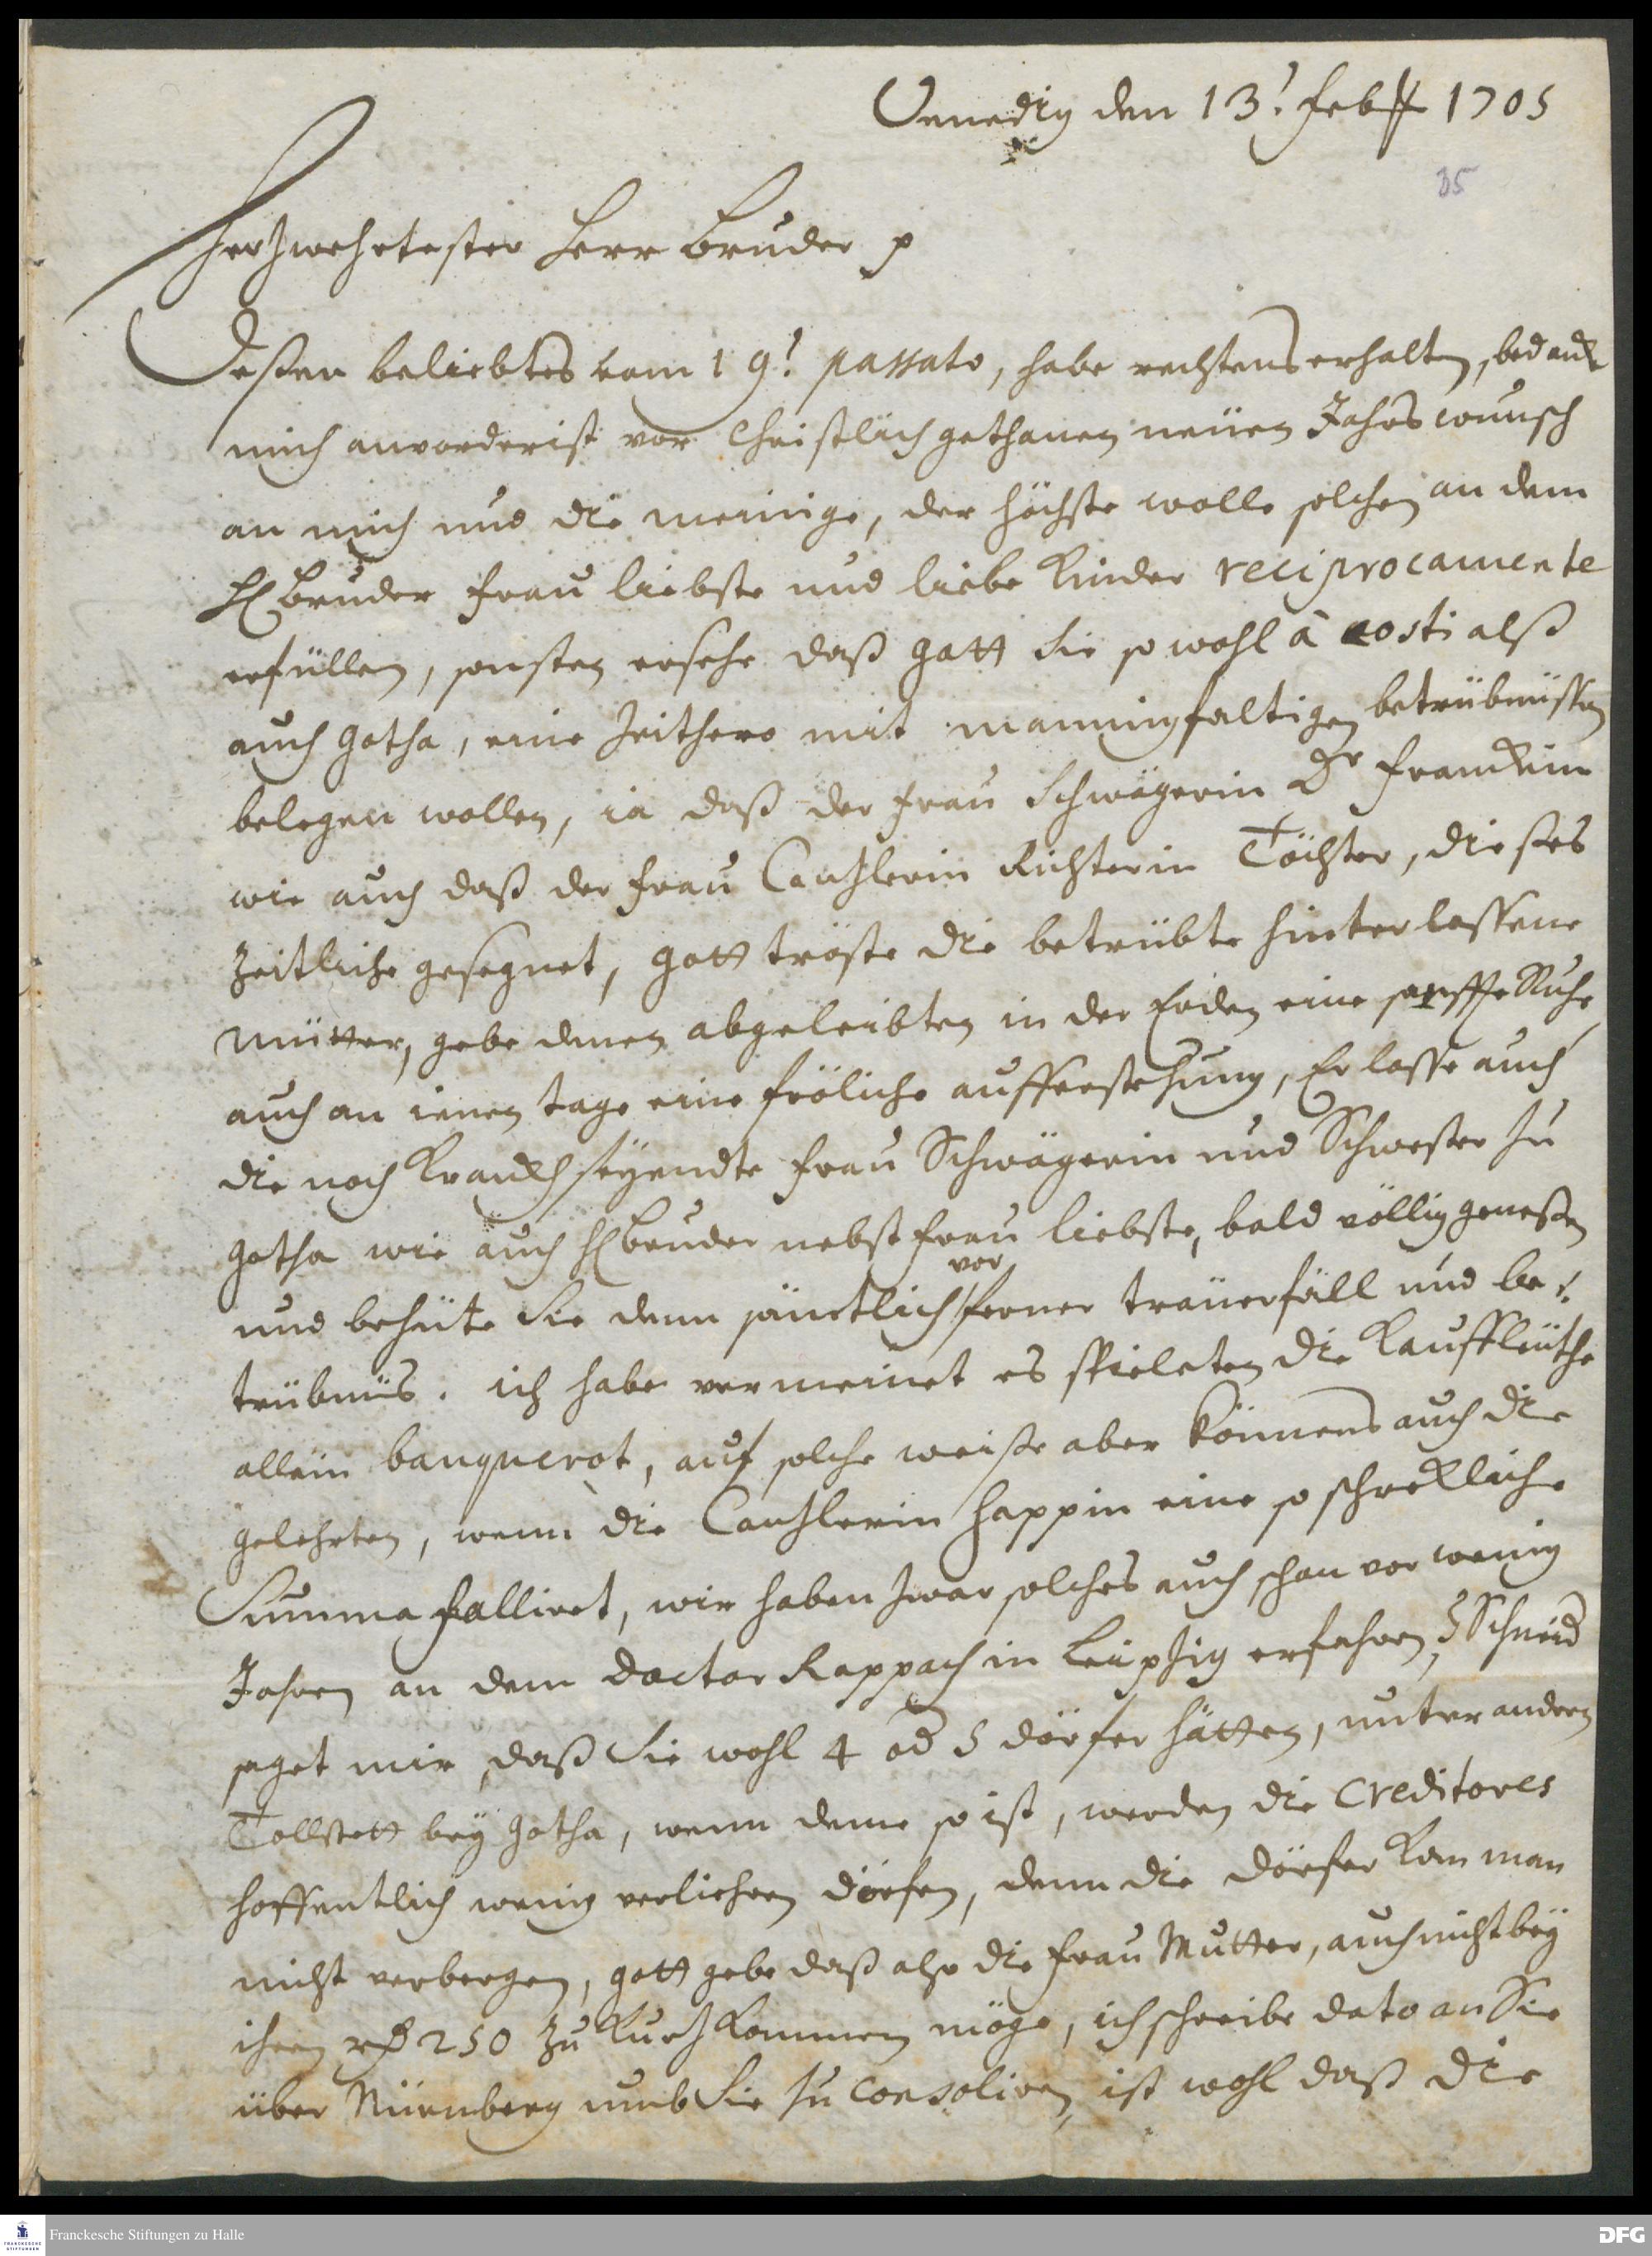 Venedig den 13.t Febr 1705
35
Herzwehrtester Herr Bruder p
Deßen beliebtes vom 19.t passato, habe rechtens erhalten, bedancke
mich anvorderist vor Christlich gethanen neüen Jahrs wunsch
an mich und die meinige, der höchste wolle solchen an dem
H Bruder Frau liebste und liebe Kinder reciprocamente
erfüllen, sonsten ersehe daß Gott Sie so wohl à costi alß
auch Gotha, eine Zeithero mit manningfaltigen betrübnüssen
belegen wollen, ia daß der Frau Schwägerin Dr Franckin
wie auch daß der Frau Cantzlerin Richterin Töchter, dießes
Zeitliche gesegnet, Gott tröste die betrübte hinterlassene
Mütter, gebe denen abgeleibten in der Erden eine sanffte Ruhe
auch an ienen tage eine fröliche aufferstehung, Er lasse auch
die noch Kranckh seyendte Frau Schwägerin und Schwester zu
Gotha wie auch H Bruder nebst Frau liebste, bald völlig geneßen
vor
und behüte Sie dann sämtlich ferner trauerfäll und be=
trübnüs. ich habe vermeinet es spieleten die Kauffleüthe
allein banquerot, auf solche weiße aber können's auch die
gelehrten, wenn die Cantzlerin Happin eine so schreckliche
Summa falliret, wir haben zwar solches auch schon vor wenig
Jahren an dem Doctor Rappach in Leipzig erfahren, H Schneid
saget mir, daß Sie wohl 4 od 5 dörfer hätten, unter andern
Tollstett bey Gotha, wenn deme so ist, werden die Creditores
hoffentlich wenig verliehren dörfen, denn die Dörfer kan man
nicht verbergen, Gott gebe daß also die Frau Mutter, auch nicht bey
ihren 250 zu Kurtz kommen möge, ich schreibe dato an Sie
über Nürnberg umb Sie zu consoliren, ist wohl daß die
Franckesche Stiftungen zu Halle
FRANCKESCHE STIFTUNGEN
DFG